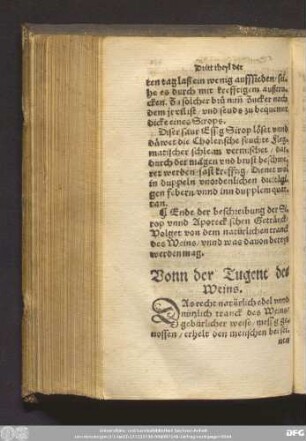 Dritt theyl der
ten tag laß ein wenig auffsieden/ sei-
he es durch mit krefftigem außtru-
cken. Zu solcher brü nim Zucker nach
dem
und seuds zu bequemer
dicke eines Syrops.
Diser Essig Sirop löset unnd
däwet die Cholerische feuchte Fleg-
matischer schleim vermischet/ da
durch der magen und brust beschwe-
ret werden/ fast krefftig. Dienet wol
in duppeln unordenlichen dreitägi-
gen febern unnd inn dupplem quar-
tan.
Ende der beschreibung der Si-
rop unnd Apoteckischen Getränck/
Volget von dem natürlichen tranck
des Weins/ unnd was davon bereyt
werden mag.
Vonn der Tugent des
Weins.
DAs recht natürlich edel unnd
nützlich tranck des Weins/
gebürlicher weise/ messig ge-
nossen/ erhelt den menschen bei sei-
nen